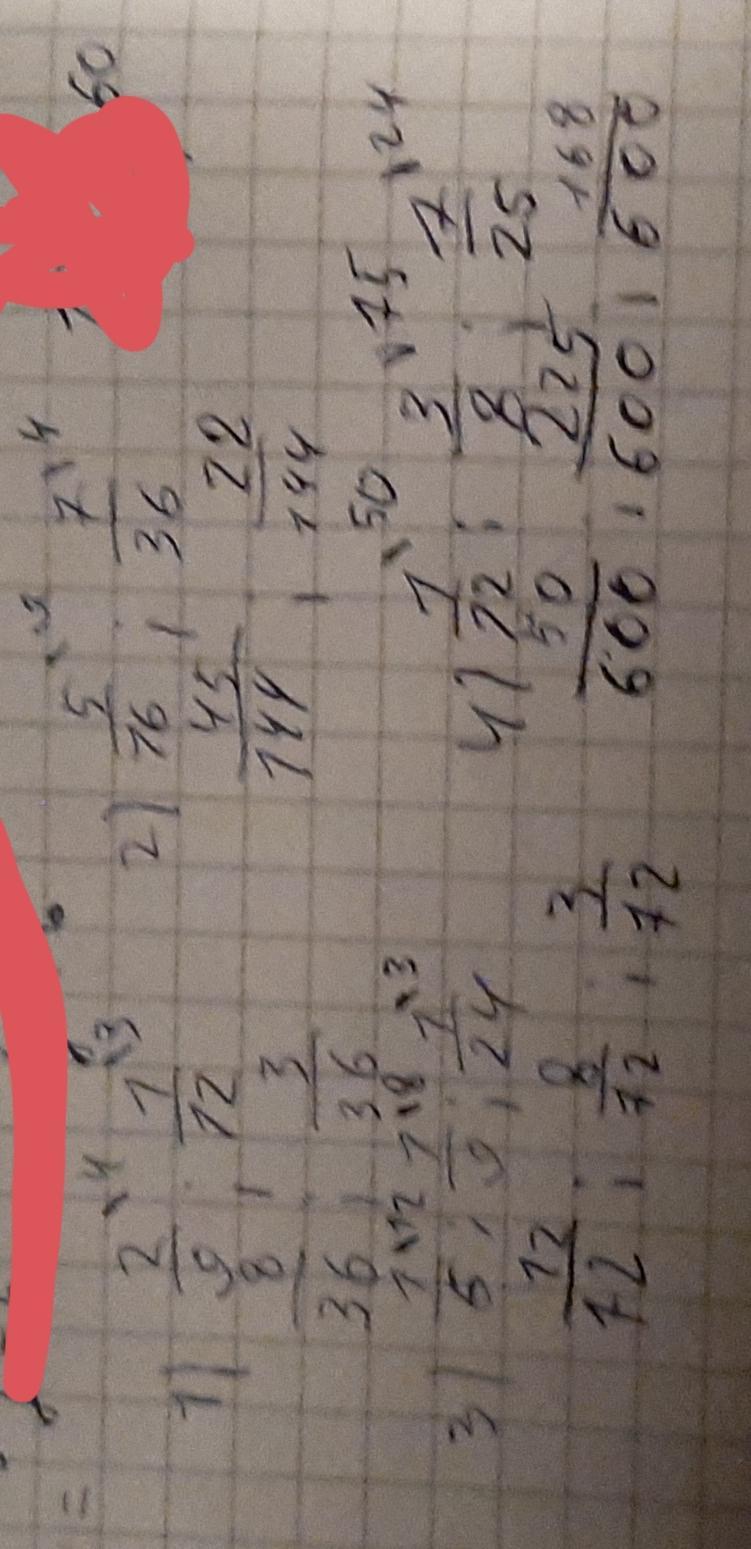 1) 2/9 \4 ; 1/12 \3
8/36 ; 3/36
2) 5/16 \9 ; 7/36 \4
45/144 ; 22/144
3) 1/6 \12 ; 1/9 \8 ; 1/24 \3
12/72 ; 8/72 ; 3/72
4) 1/12 \50 ; 3/8 \75 ; 7/25 \24
50/600 ; 225/600 ; 168/600